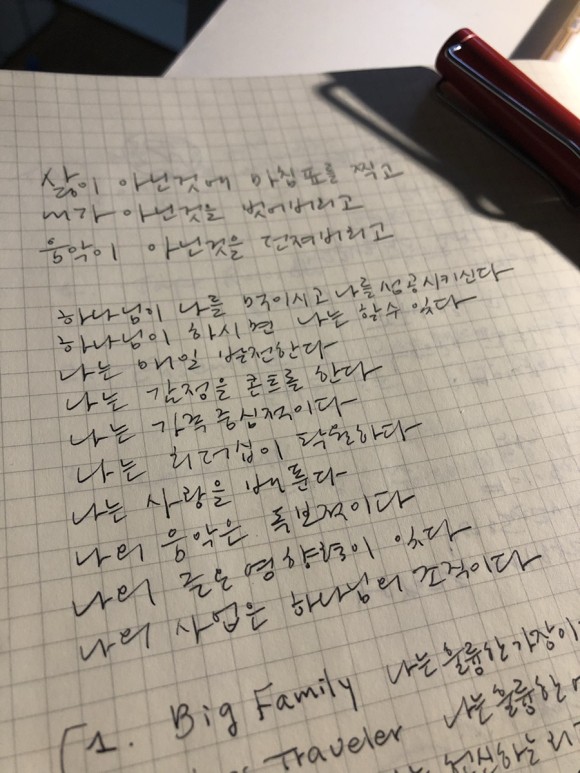 삶이 아닌것에 마침표를 찍고
내가 아닌것을 벗어버리고
음악이 아닌것을 던져버리고
하나님이 나를 먹이시고 나를 성공시키신다
하나님이 하시면 나는 할수 있다
나는 매일 발전한다
나는 감정을 콘트롤 한다
나는 가족중심적이다
나는 리더십이 탁월하다
나는 사랑을 베푼다
나의 음악은 독보적이다
나의 글은 영향력이 있다
나의 사업은 하나님의 조직이다
1. Big Family 나는 훌륭한 가장이
Traveler 나는 훌륭한